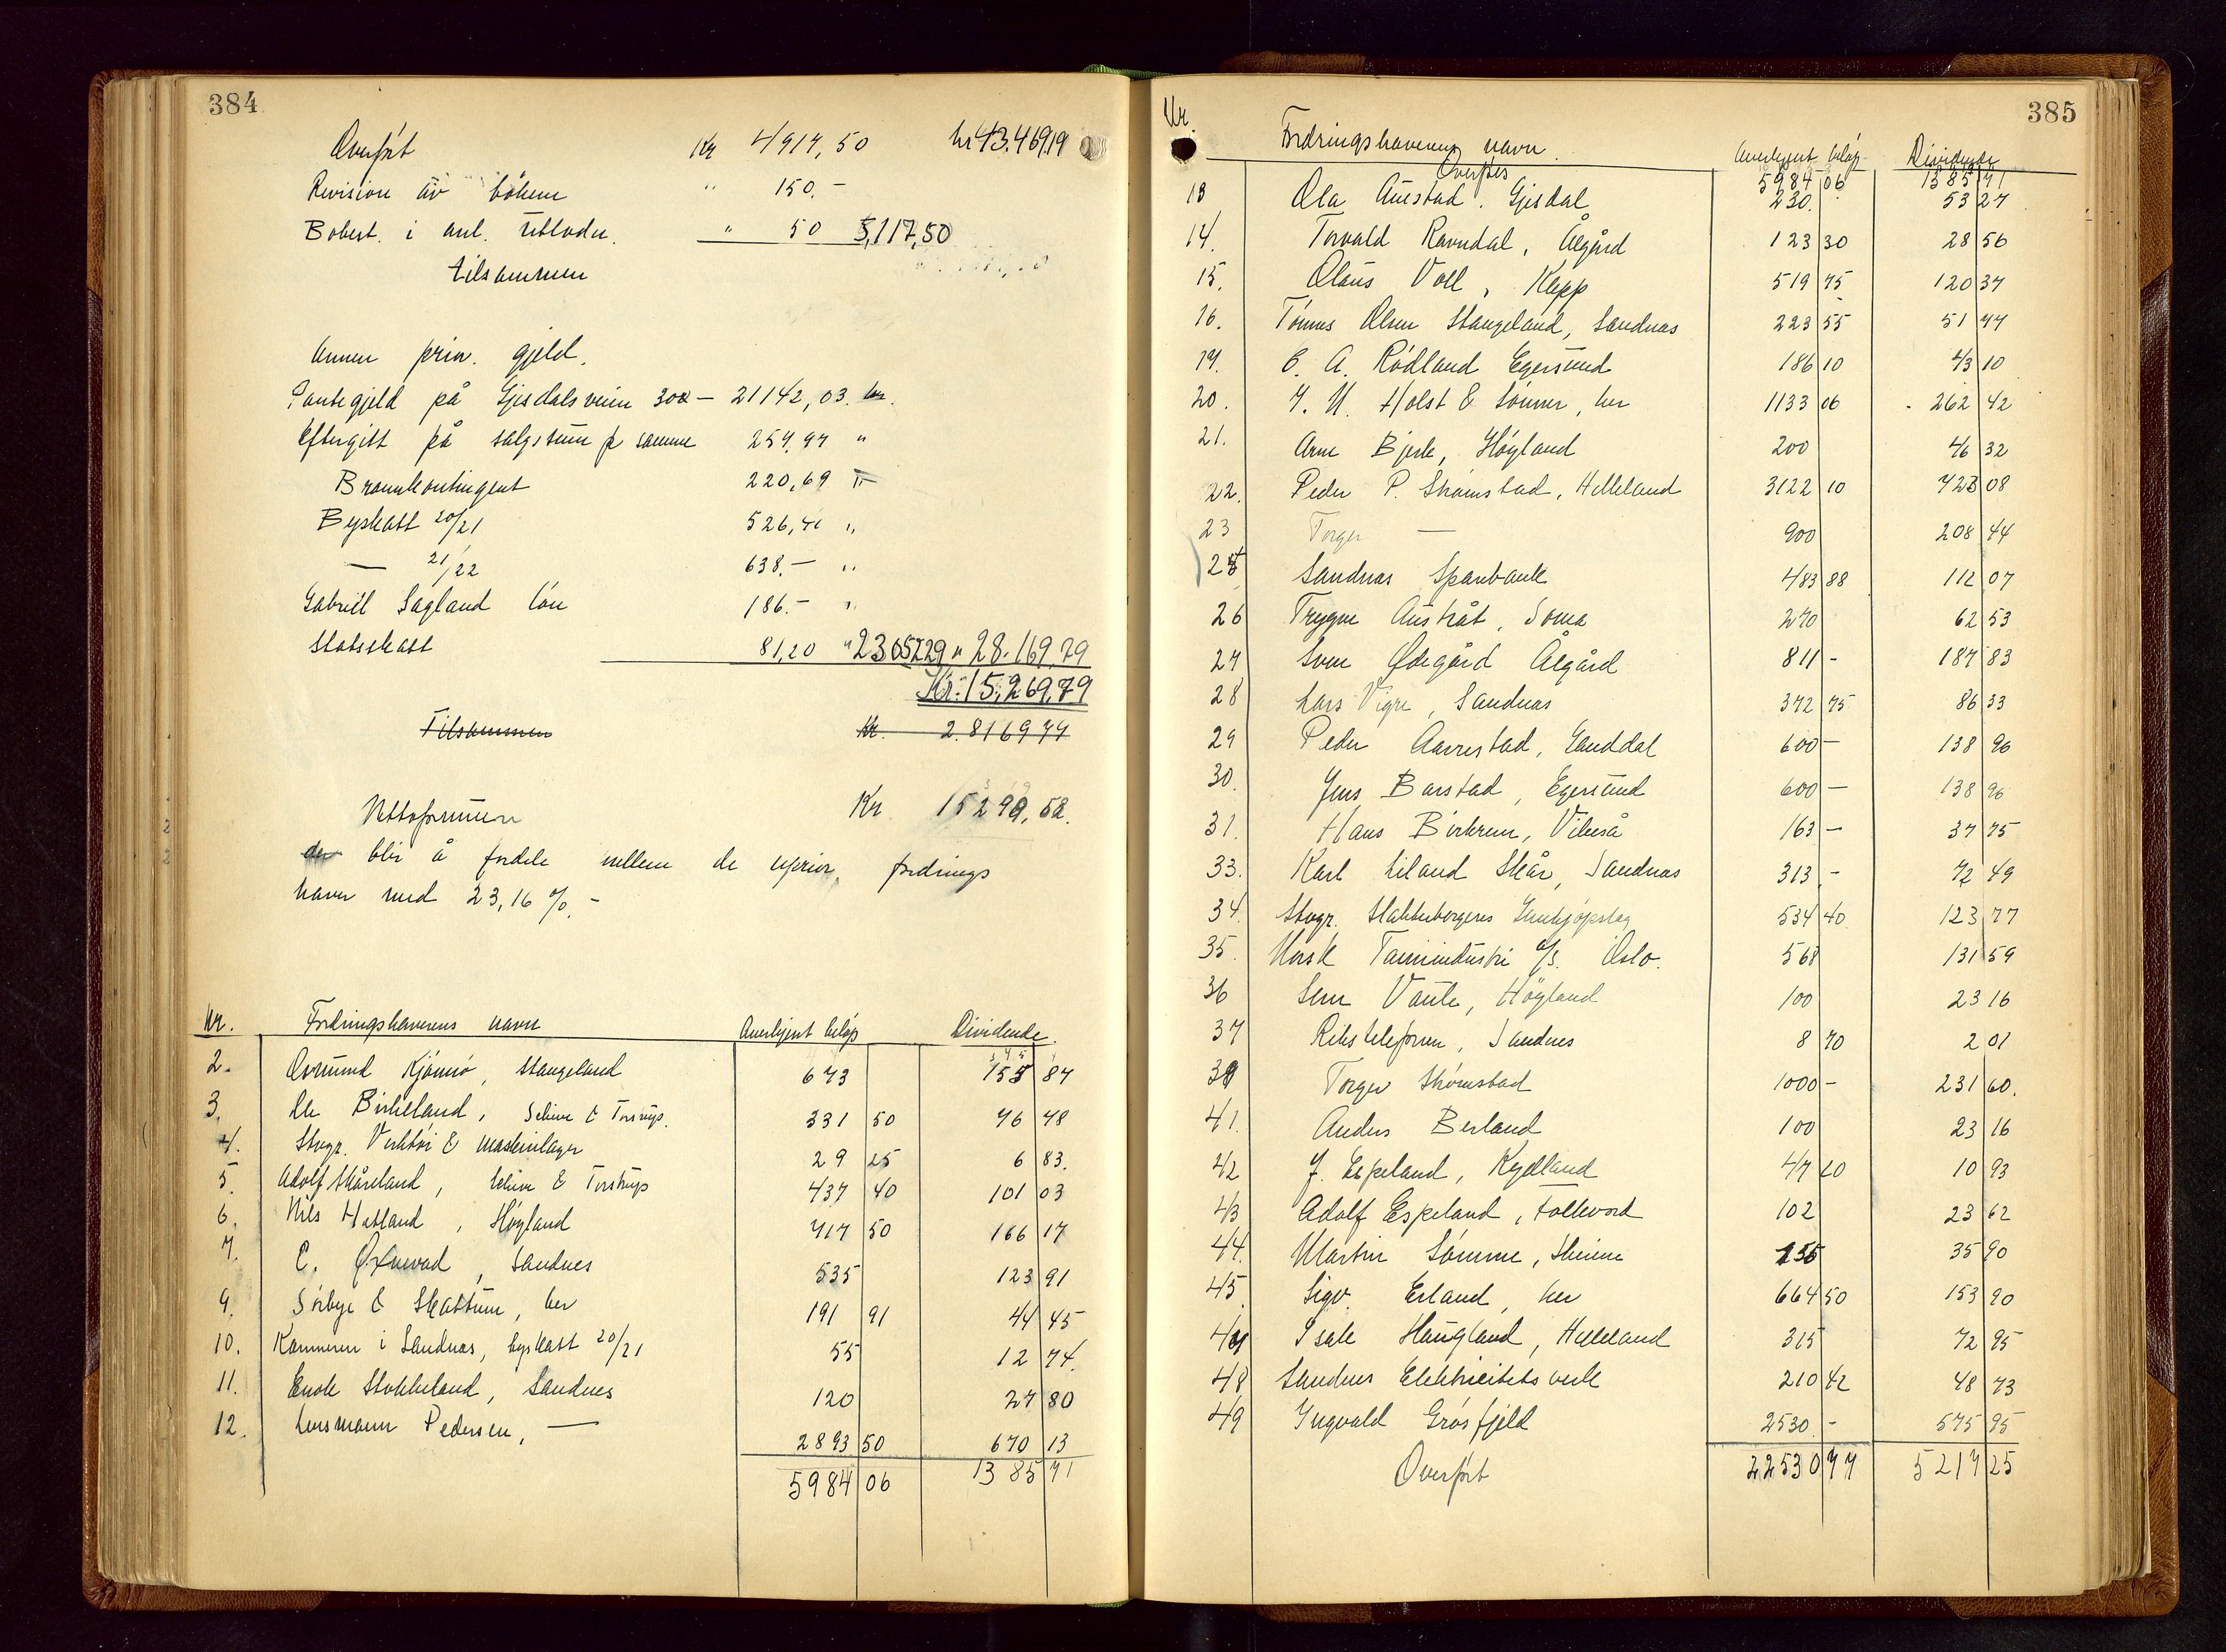 384
Overført Kr 4917,50 kr 43.469,19
Revision av bökene " 150.-
Bobest. i anl. utlodn. " 50 5,117,50
tilsammen
Annen priv. gjeld.
Pantegjeld på Gjesdalsveien 30a - 21142,03 kr.
Eftergitt på salgssum f samme 257,97 "
Brannkontingent 220,69 "
Byskatt 20/21 526,40 "
— 21/22 638.- "
Gabriel Sagland lön 186.- "
Statsskatt 81,20 " 23052,29 " 28.169,79
Kr. 15,269,79
Tilsammen Kr. 2.816979
Nettoformuen Kr 15299,58.
der blir å fordele mellem de uprior. fordrings
havere med 23,16 %.-
Nr. Fordringshaverens navn Anerkjent beløp Dividende.
2. Osmund Kjönnö, Stangeland 673 155 87
3. Ole Birkeland, Schive & Torstrups. 331 50 76 78
4. Stvgr. Verktöi & Maskinlager 29 25 6 83.
5. Adolf Skåreland, Schive & Torstrups 437 40 101 03
6. Nils Hetland, Høyland 717 50 166 17
7. E. Øxnevad, Sandnes 535 123 91
9. Sörbye & Skattum, her 191 91 44 45
10. Kæmneren i Sandnes, byskatt 20/21 55 12 74.
11. Enok Stokkeland, Sandnes 120 27 80
12. Lensmann Pedersen, — 2893 50 670 13
5984 06 1385 71
385
Nr. Fordringshaverens navn Anerkjent beløp Dividende
Overføres 5984 06 1385 71
13 Ola Austad. Gjesdal 230. 53 27
14. Torvald Ravndal, Ålgård 123 30 28 56
15. Olaus Voll, Klepp 519 75 120 37
16. Tönnes Olsen Stangeland, Sandnes 223 55 51 77
17. C. A. Rödland Egersund 186 10 43 10
20. J. N. Holst & Sönner, her 1133 06 262 42
21. Arne Bjerk, Höyland 200 46 32
22. Peder P. Skømstad, Helleland 3122 10 723 08
23 Torger — 900 208 44
25 Sandnes Sparebank 483 88 112 07
26 Trygve Austråt, Soma 270 62 53
27 Sven Ødegård Ålgård 811 - 187 83
28 Lars Vigre, Sandnes 372 75 86 33
29 Peder Aarrestad, Ganddal 600 - 138 96
30. Jens Barstad, Egersund 600 - 138 96
31. Hans Birkrem, Vikeså 163 - 37 75
33. Karl Liland Skår, Sandnes 313 - 72 49
34. Stvgr. Slakterborgeres Innkjøpslag 534 40 123 77
35. Norsk Tauindustri a/s. Oslo. 568 131 59
36 Sem Vaule, Höyland 100 23 16
37 Rikstelefonen, Sandnes 8 70 2 01
39 Torger Skömstad 1000 - 231 60.
41. Anders Berland 100 23 16
42 J. Espeland, Kydland 47 20 10 93
43 Adolf Espeland, Follevord 102 23 62
44. Martin Sømme, Skeiene 155 35 90
45. Sigv. Erland, her 664 50 153 90
46 Isak Haugland, Helleland 315 72 95
48 Sandnes Elektricitetsverk 210 42 48 73
49 Ingvald Gråsfjeld 2530 - 575 95
Overført 22530 77 5217 25